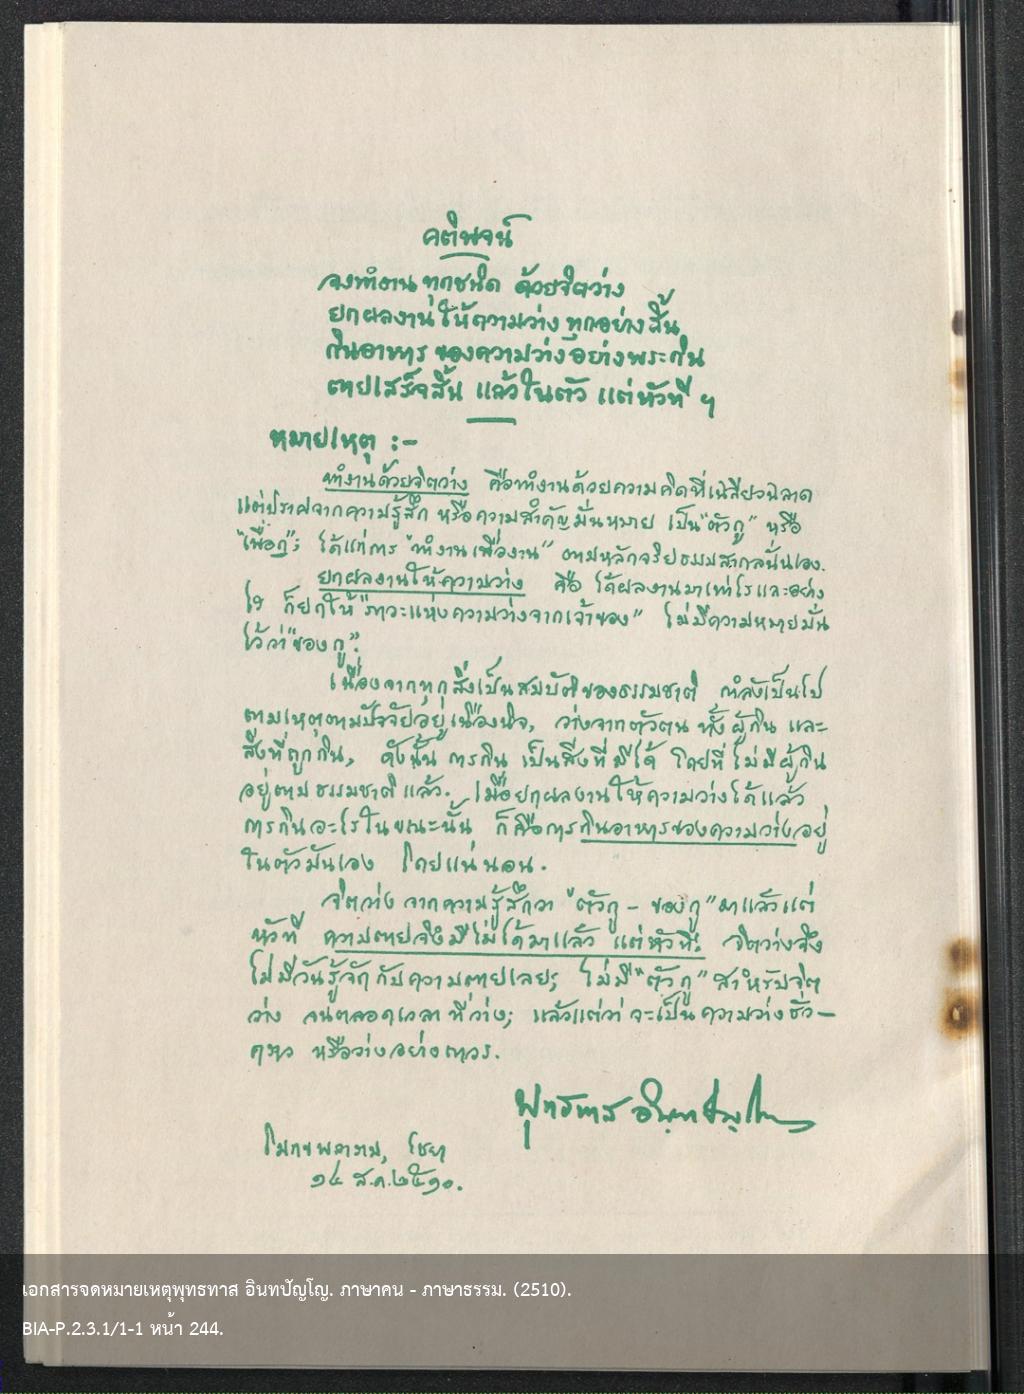 คติพจน์
จงทำงาน ทุกชนิด ด้วยจิตว่าง
ยกผลงานให้ความว่าง ทุกอย่างสิ้น
กินอาหาร ของความว่าง อย่างพระกิน
ตายเสร็จสิ้น แล้วในตัว แต่หัวที ฯ
หมายเหตุ :-
ทำงานด้วยจิตว่าง คือทำงานด้วยความคิดที่เฉลียวฉลาด
แต่ปราศจากความรู้สึก หรือความสำคัญมั่นหมาย เป็น "ตัวกู" หรือ
"เพื่อกู"; ได้แก่การ "ทำงานเพื่องาน" ตามหลักจริยธรรมสากลนั่นเอง.
ยกผลงานให้ความว่าง คือ ได้ผลงานมาเท่าไรและอย่าง
ไร ก็ยกให้ "ภาวะแห่งความว่างจากเจ้าของ" ไม่มีความหมายมั่น
ไว้ว่า "ของกู".
เนื่องจากทุกสิ่งเป็นสมบัติของธรรมชาติ กำลังเป็นไป
ตามเหตุตามปัจจัยอยู่เนืองนิจ, ว่างจากตัวตน ทั้งผู้กิน และ
สิ่งที่ถูกกิน, ดังนั้น การกิน เป็นสิ่งที่มีได้ โดยที่ไม่มีผู้กิน
อยู่ตามธรรมชาติแล้ว. เมื่อยกผลงานให้ความว่างได้แล้ว
การกินอะไรในขณะนั้น ก็คือการกินอาหารของความว่างอยู่
ในตัวมันเอง โดยแน่นอน.
จิตว่าง จากความรู้สึกว่า "ตัวกู - ของกู" มาแล้วแต่
หัวที ความตายจึงมีไม่ได้มาแล้ว แต่หัวที; จิตว่างจึง
ไม่มีวันรู้จักกับความตายเลย; ไม่มี "ตัวกู" สำหรับจิต
ว่าง จนตลอดเวลาที่ว่าง; แล้วแต่ว่าจะเป็นความว่างชั่ว-
คราว หรือว่างอย่างถาวร.
พุทธทาส อินทปัญโญ
โมกขพลาราม, ไชยา
๑๔ ส.ค. ๒๕๑๐.
เอกสารจดหมายเหตุพุทธทาส อินทปัญโญ. ภาษาคน - ภาษาธรรม. (2510).
BIA-P.2.3.1/1-1 หน้า 244.